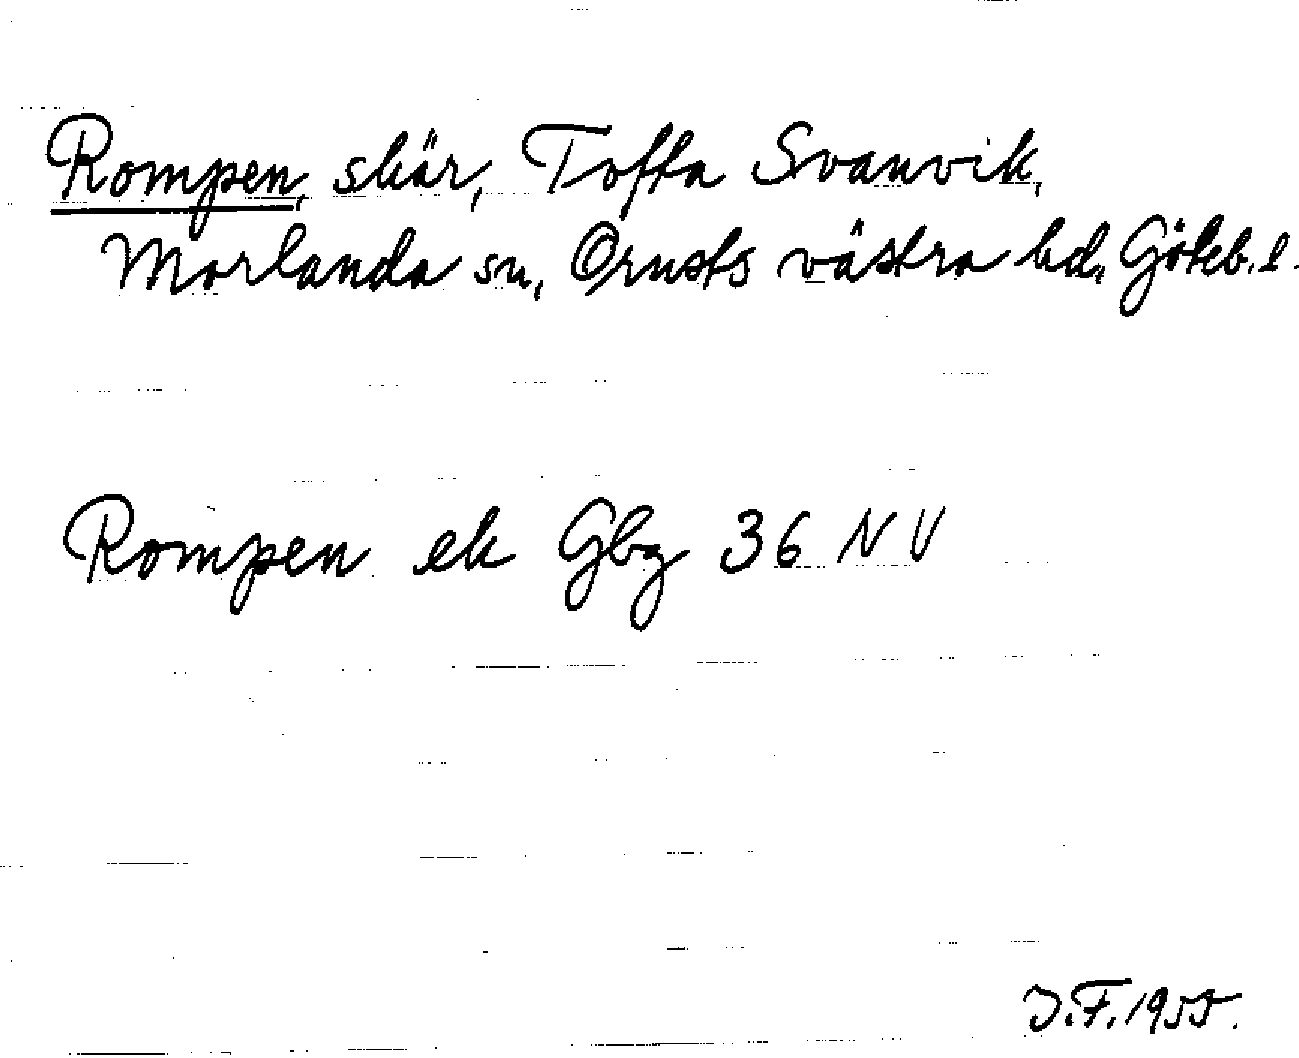 Rompen, skär, Tofta Svanvik,
Morlanda sn, Orusts västra hd, Göteb. l.
Rompen ek Gbg 36 NV
J.F. 1955.